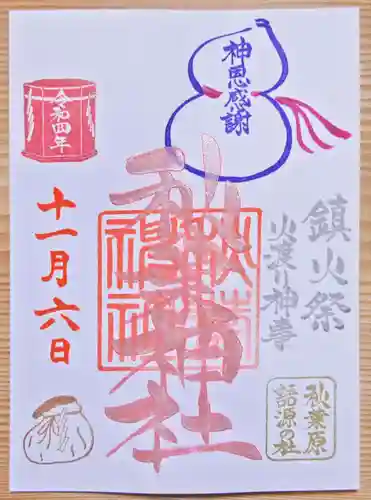 神恩感謝
令和四年
鎮火祭
火渡り神事
秋葉神社
十一月六日
秋葉原
語源の社